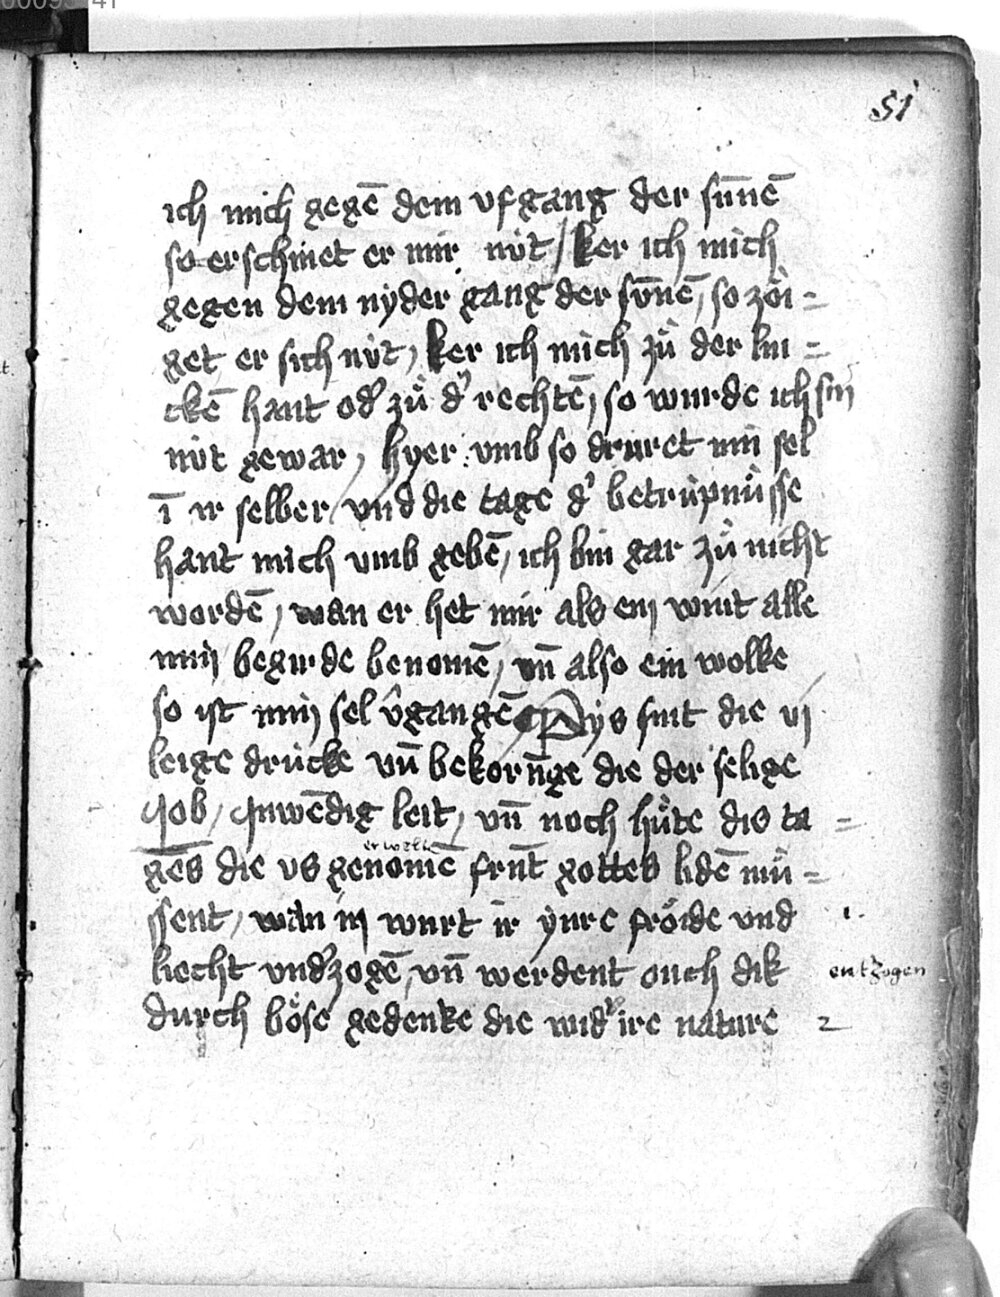 51
ich mich gegē dem vfgang der sūnē
so erschinet er mir nüt / ker ich mich
gegen dem nyder gang der sūnē, so zöi=
get er sich nüt, ker ich mich zů der lin=
ckē hant od' zů d' rechtē, so wurde ich sin
nüt gewar, hyer vmb so druret min sel
ī ir selber / vnd die tage d' betrüpnüsse
hant mich vmb gebē, ich bin gar zů nicht
wordē, wan er het mir als ein wint alle
min begirde benomē, vn̄ also ein wolke
so ist min sel v̂gangē Dys sint die vj
leige drucke vn̄ bekorn̄ge die der selige
Job, Inwēdig leit, vn̄ noch hüte dis ta=
erwelte
ges die vs genomē frūt gottes lidē mü=
ssent, wan in wurt ir ynre fröide vnd
liecht vnd'zogē, vn̄ werdent ouch dik
entzogen
durch böse gedenke die wid' ire nature